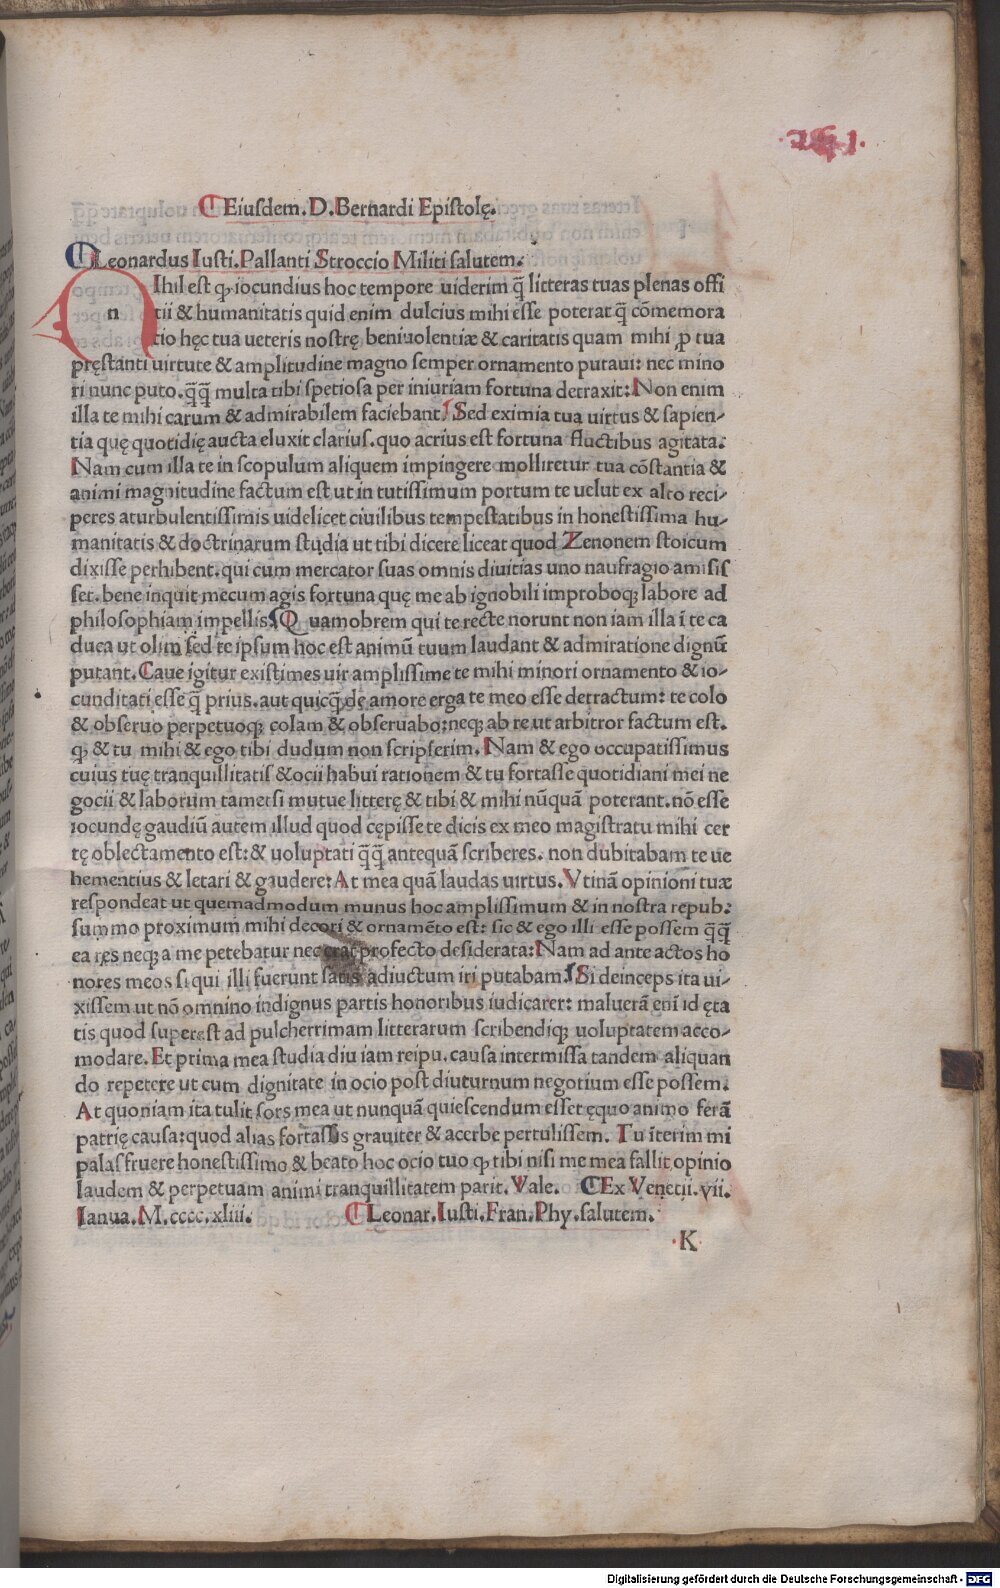 Eiusdem. D. Bernardi Epistolę.
Leonardus Iusti. Pallanti Stroccio Militi salutem.
IHil est ꝙ iocundius hoc tempore uiderim q̄ litteras tuas plenas offi
n tii & humanitatis quid enim dulcius mihi esse poterat q̄ cōmemora
tio hęc tua ueteris nostrę beniuolentiæ & caritatis quam mihi ꝓ tua
pręstanti uirtute & amplitudine magno semper ornamento putaui: nec mino
ri nunc puto. q̄q̄ multa tibi spetiosa per iniuriam fortuna detraxit: Non enim
illa te mihi carum & admirabilem faciebant Sed eximia tua uirtus & sapien-
tia quę quotidię aucta eluxit clarius. quo acrius est fortuna fluctibus agitata.
Nam cum illa te in scopulum aliquem impingere molliretur tua cōstantia &
animi magnitudine factum est ut in tutissimum portum te uelut ex alto reci-
peres aturbulentissimis uidelicet ciuilibus tempestatibus in honestissima hu-
manitatis & doctrinarum studia ut tibi dicere liceat quod Zenonem stoicum
dixisse perhibent. qui cum mercator suas omnis diuitias uno naufragio amisis
set. bene inquit mecum agis fortuna quę me ab ignobili improboq; labore ad
philosophiam impellis. Quamobrem qui te recte norunt non iam illa ī te ca
duca ut olim sed te ipsum hoc est animū tuum laudant & admiratione dignū
putant. Caue igitur existimes uir amplissime te mihi minori ornamento & io-
cunditati esse q̄ prius. aut quicq̄ de amore erga te meo esse detractum: te colo
& obseruo perpetuoq; colam & obseruabo: neq; ab re ut arbitror factum est.
ꝙ & tu mihi & ego tibi dudum non scripserim. Nam & ego occupatissimus
cuius tuę tranquillitatis & ocii habui rationem & tu fortasse quotidiani mei ne
gocii & laborum tametsi mutue litterę & tibi & mihi nūquā poterant. nō esse
iocundę gaudiū autem illud quod cępisse te dicis ex meo magistratu mihi cer
tę oblectamento est: & uoluptati q̄q̄ antequā scriberes. non dubitabam te ue
hementius & letari & gaudere: At mea quā laudas uirtus. Vtinā opinioni tuæ
respondeat ut quemadmodum munus hoc amplissimum & in nostra repub:
summo proximum mihi decori & ornamēto est: sic & ego illi esse possem q̄q̄
ea res neq; a me petebatur nec erat profecto desiderata: Nam ad ante actos ho
nores meos si qui illi fuerunt satis adiuctum iri putabam. Si deinceps ita ui-
xissem ut nō omnino indignus partis honoribus iudicarer: maluerā eni id ęta
tis quod superest ad pulcherrimam litterarum scribendiq; uoluptatem acco-
modare. Et prima mea studia diu iam reipu. causa intermissa tandem aliquan
do repetere ut cum dignitate in ocio post diuturnum negotium esse possem.
At quoniam ita tulit sors mea ut nunquā quiescendum esset ęquo animo ferā
patrię causa: quod alias fortassis grauiter & acerbe pertulissem. Tu īterim mi
palas fruere honestissimo & beato hoc ocio tuo ꝙ tibi nisi me mea fallit opinio
laudem & perpetuam animi tranquillitatem parit. Vale. Ex Venetii. vii.
Ianua. M. cccc. xliii. Leonar. Iusti. Fran. Phy. salutem.
K
Digitalisierung gefördert durch die Deutsche Forschungsgemeinschaft - DFG